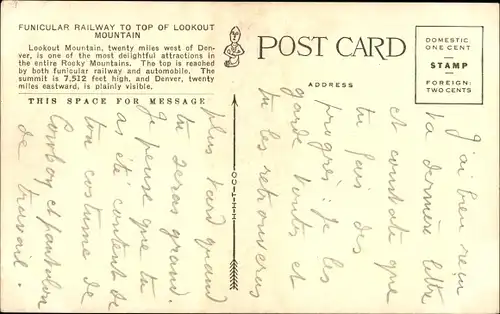 FUNICULAR RAILWAY TO TOP OF LOOKOUT
MOUNTAIN
Lookout Mountain, twenty miles west of Den-
ver, is one of the most delightful attractions in
the entire Rocky Mountains. The top is reached
by both funicular railway and automobile. The
summit is 7,512 feet high, and Denver, twenty
miles eastward, is plainly visible.
THIS SPACE FOR MESSAGE
POST CARD
ADDRESS
DOMESTIC
ONE CENT
STAMP
FOREIGN:
TWO CENTS
J'ai bien reçu
ta dernière lettre
et constate que
tu fais des
progrès; je les
garde toutes et
tu les retrouveras
plus tard quand
tu seras grand.
Je pense que tu
as été content de
ton costume de
Cowboy et pantalon
de travail.